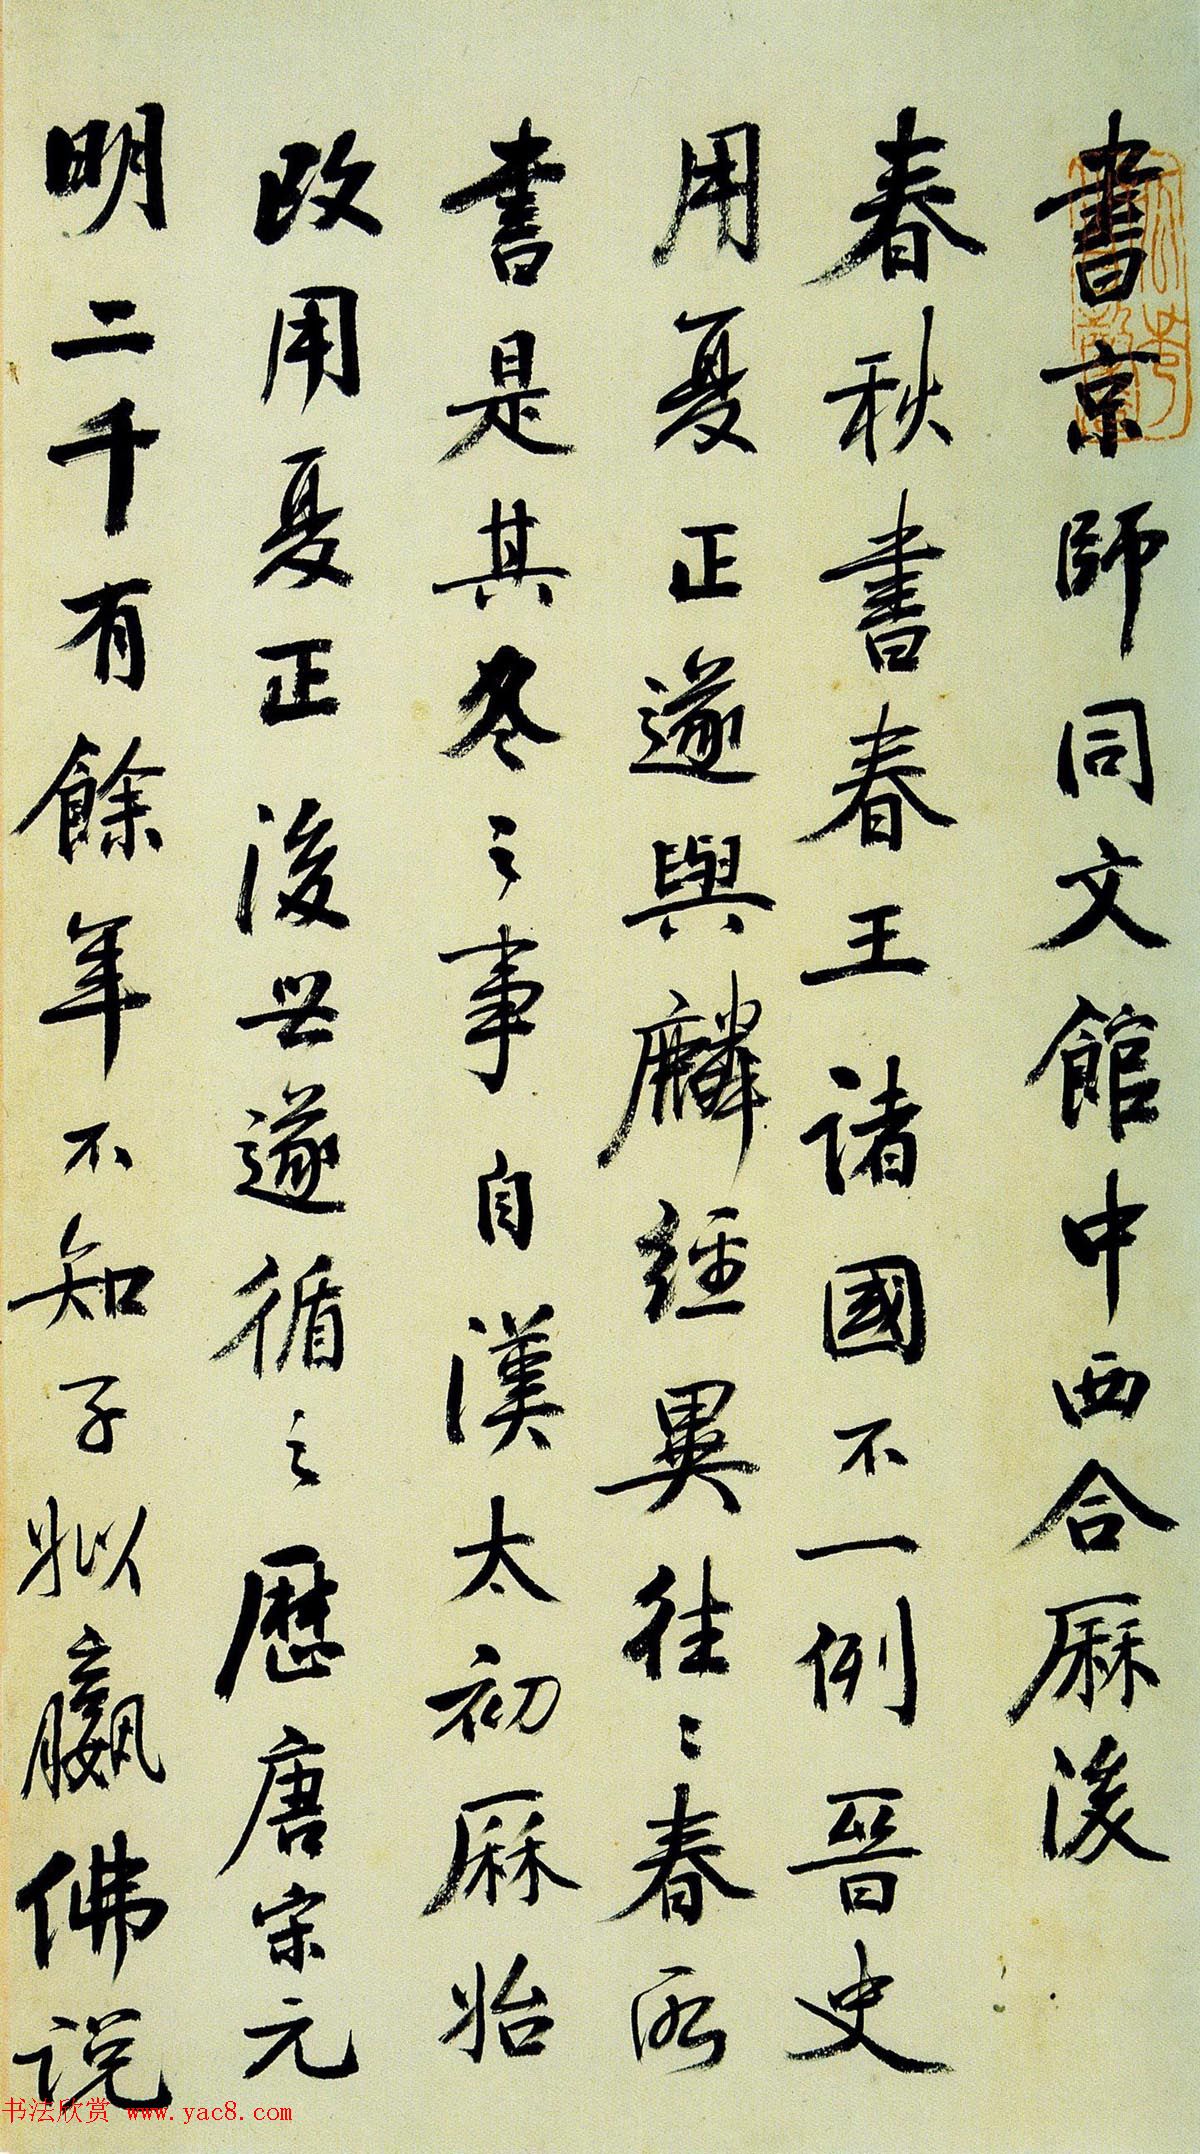 書京師同文館中西合厤後
春秋書春王諸國不一例晉史
用夏正遂與麟經異往〻春所
書是其冬之事自漢太初厤始
改用夏正後世遂循之歷唐宋元
明二千有餘年不知子拟嬴佛説
书法欣赏 www.yac8.com